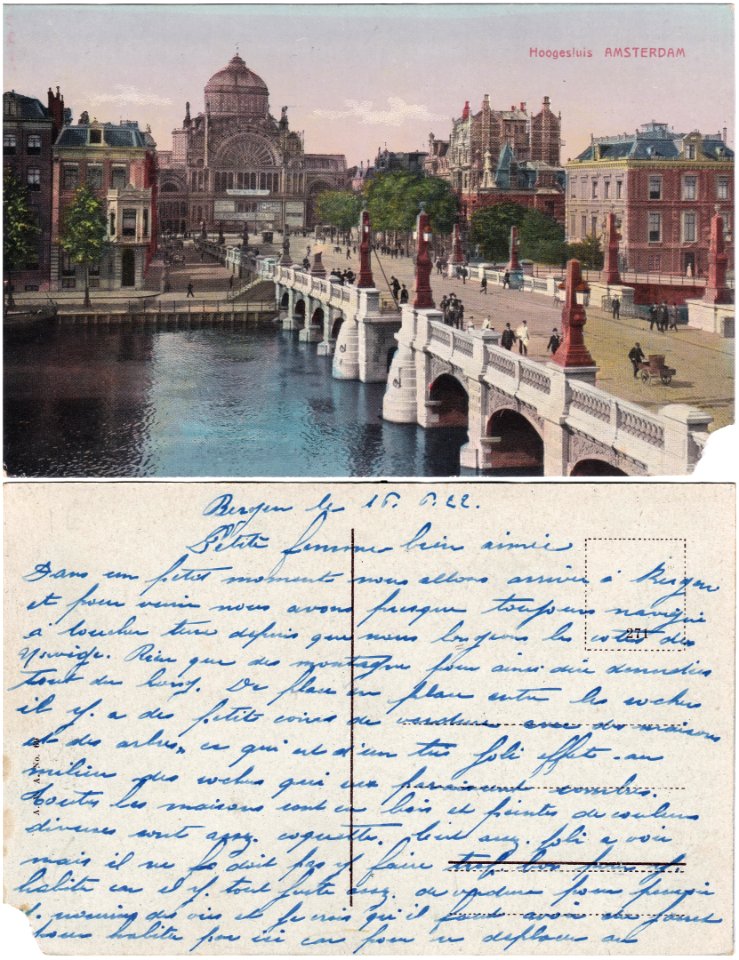 Hoogesluis AMSTERDAM
Bergen le 16. 6. 22.
Petite femme bien aimée
Dans un petit moment nous allons arriver à Bergen
et pour venir nous avons presque toujours navigué
à toucher terre depuis que nous longeons les cotes de
Norvège. Rien que des montagne pour ainsi dire denudées
tout du long. De place en place entre les roches
il y a des petits coins de verdure avec des maisons
et des arbres, ce qui est d'un très joli effet au
milieu des roches qui eux paraissent sombres.
Toutes les maisons sont en bois et peintes de couleurs
diverses sont assez coquettes. C'est assez joli a voir
mais il ne doit pas y faire trop bon pour y
habite car il y tout juste assez de verdure pour
nourrir des et je crois qu'il faut avoir
habite par ici car pour se deplacer au
271
A. A. No.